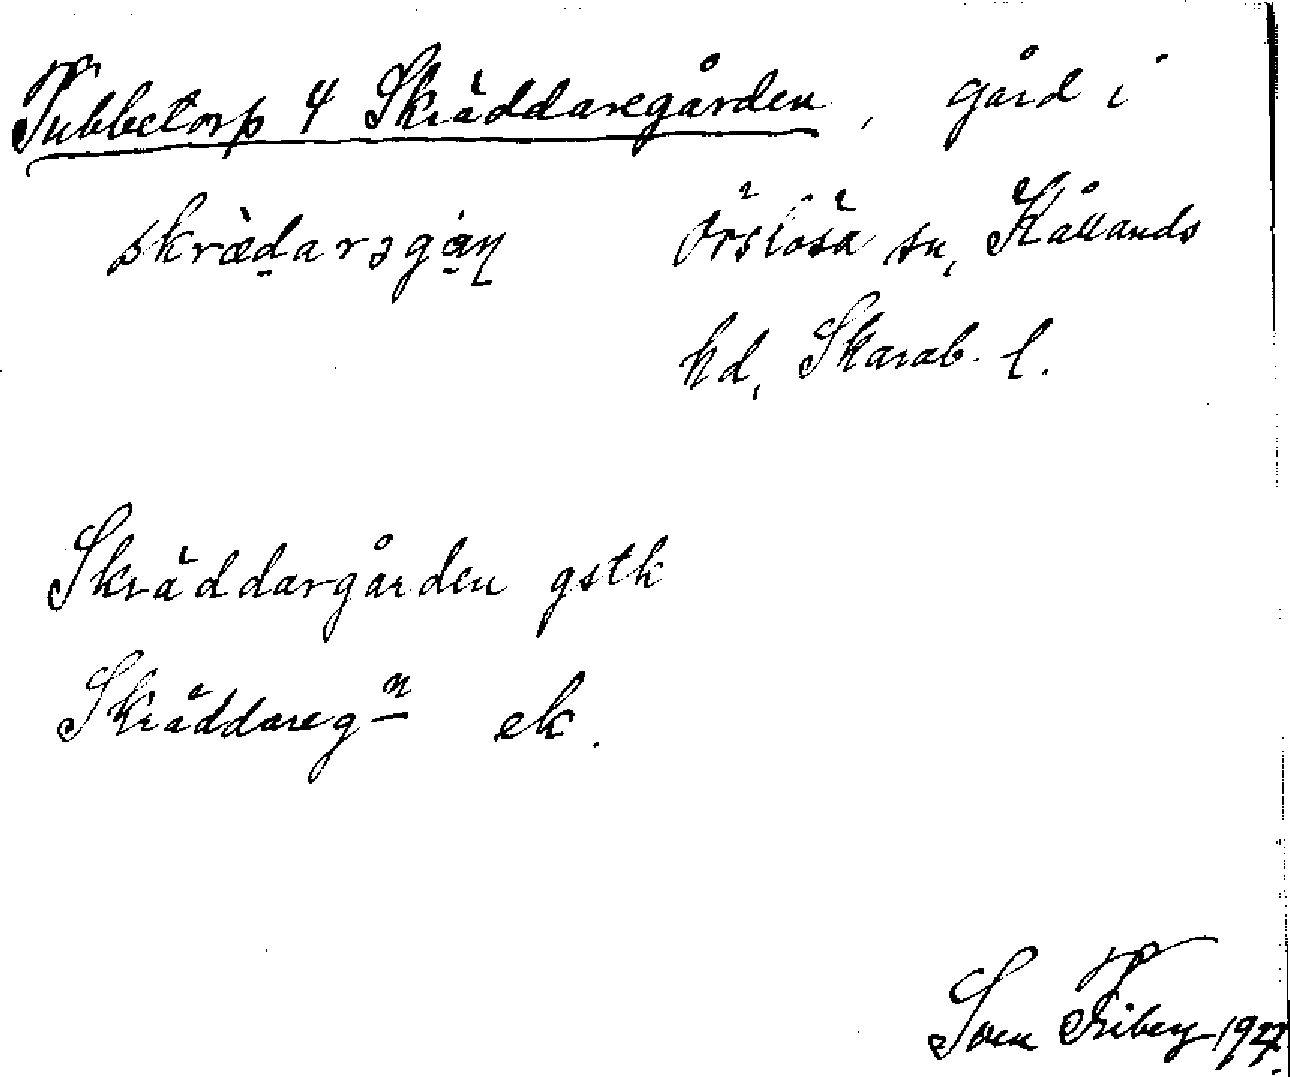 Tubbetorp 4 Skräddaregården, gård i
skrædarəgan Örslösa sn, Kållands
hd, Skarab. l.
Skräddargården gstk
Skräddaregn ek.
Sven Friberg